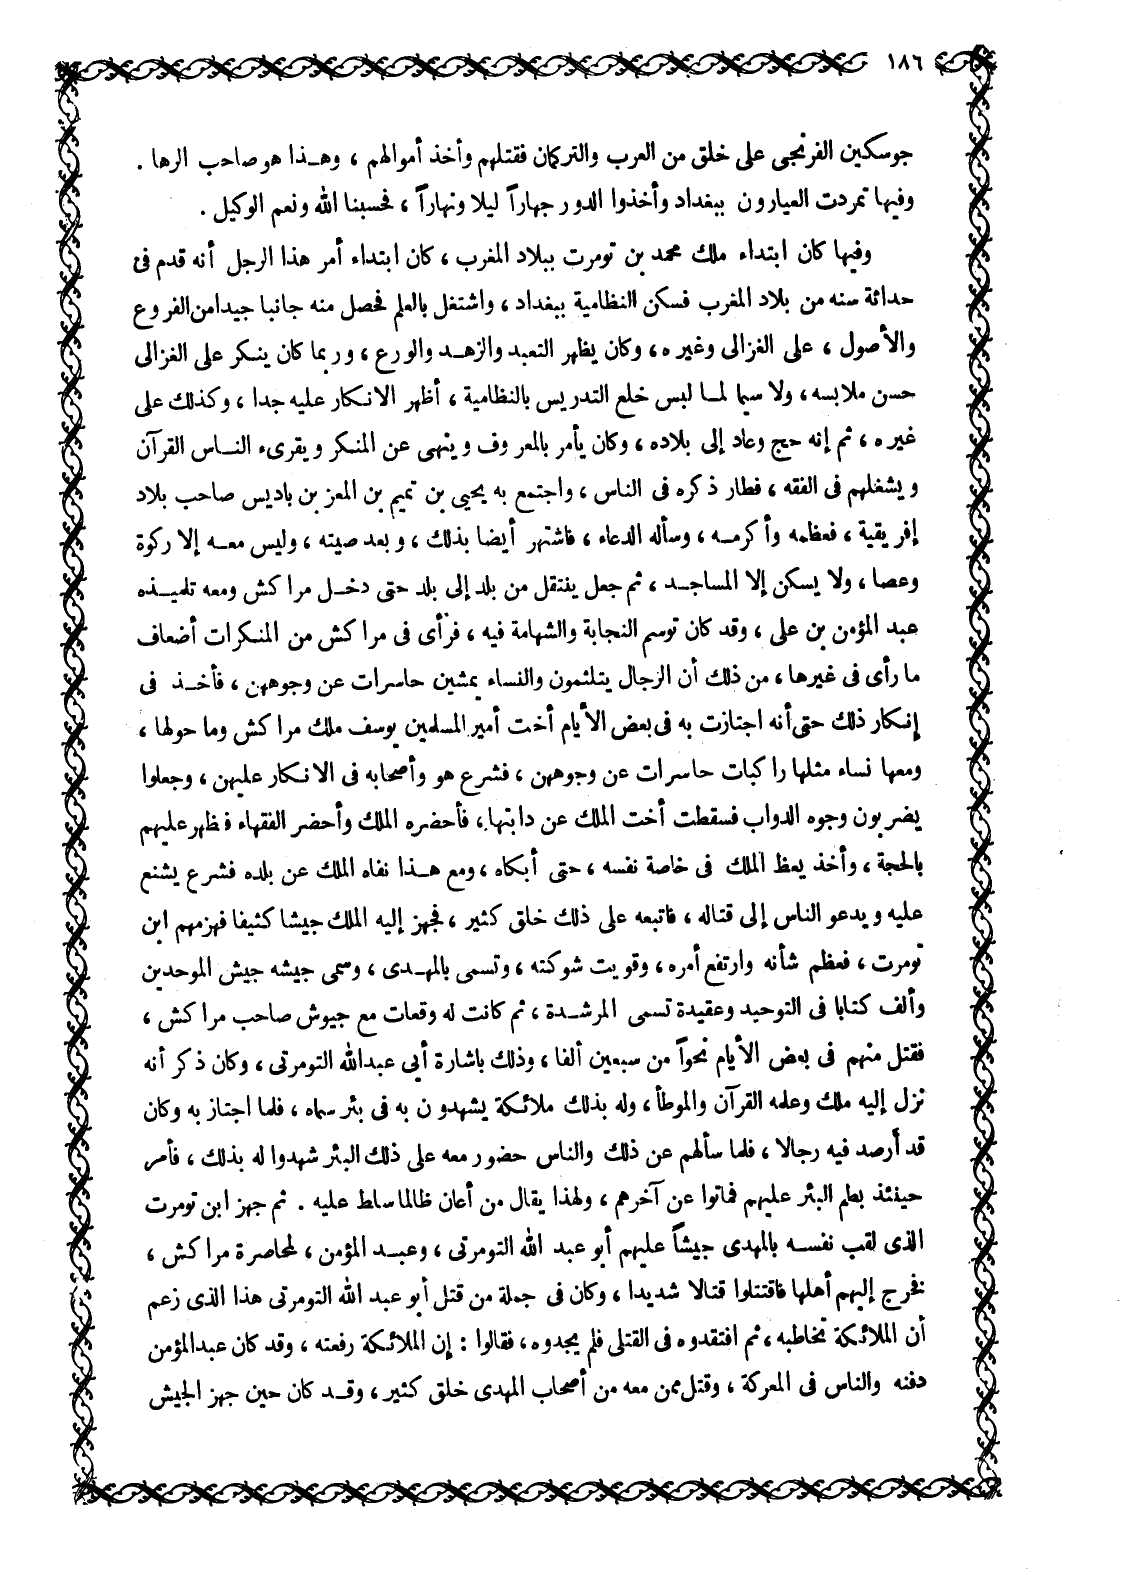 ١٨٦
جوسكين الفرنجى على خلق من العرب والتركمان فقتلهم وأخذ أموالهم ، وهذا هو صاحب الرها .
وفيها تمردت العيارون ببغداد وأخذوا الدور جهاراً ليلا ونهاراً ، فحسبنا الله ونعم الوكيل .
وفيها كان ابتداء ملك محمد بن تومرت ببلاد المغرب ، كان ابتداء أمر هذا الرجل أنه قدم فى
حداثة سنه من بلاد المغرب فسكن النظامية ببغداد ، واشتغل بالعلم فحصل منه جانبا جيدا من الفروع
والأصول ، على الغزالى وغيره ، وكان يظهر التعبد والزهد والورع ، وربما كان ينكر على الغزالى
حسن ملابسه ، ولا سيما لما لبس خلع التدريس بالنظامية ، أظهر الانكار عليه جدا ، وكذلك على
غيره ، ثم إنه حج وعاد إلى بلاده ، وكان يأمر بالمعروف وينهى عن المنكر ويقرىء الناس القرآن
ويشغلهم فى الفقه ، فطار ذكره فى الناس ، واجتمع به يحيى بن تميم بن المعز بن باديس صاحب بلاد
إفريقية ، فعظمه وأكرمه ، وسأله الدعاء ، فاشتهر أيضا بذلك ، وبعد صيته ، وليس معه إلا ركوة
وعصا ، ولا يسكن إلا المساجد ، ثم جعل ينتقل من بلد إلى بلد حتى دخل مراكش ومعه تلميذه
عبد المؤمن بن على ، وقد كان توسم النجابة والشهامة فيه ، فرأى فى مراكش من المنكرات أضعاف
ما رأى فى غيرها ، من ذلك أن الرجال يتلثمون والنساء يمشين حاسرات عن وجوههن ، فأخذ فى
إنكار ذلك حتى أنه اجتازت به فى بعض الأيام أخت أمير المسلمين يوسف ملك مراكش وما حولها ،
ومعها نساء مثلها راكبات حاسرات عن وجوههن ، فشرع هو وأصحابه فى الانكار عليهن ، وجعلوا
يضربون وجوه الدواب فسقطت أخت الملك عن دابتها ، فأحضره الملك وأحضر الفقهاء فظهر عليهم
بالحجة ، وأخذ يعظ الملك فى خاصة نفسه ، حتى أبكاه ، ومع هذا نفاه الملك عن بلده فشرع يشنع
عليه ويدعو الناس إلى قتاله ، فاتبعه على ذلك خلق كثير ، فجهز إليه الملك جيشا كثيفا فهزمهم ابن
تومرت ، فعظم شأنه وارتفع أمره ، وقويت شوكته ، وتسمى بالمهدى ، وسمى جيشه جيش الموحدين
وألف كتابا فى التوحيد وعقيدة تسمى المرشدة ، ثم كانت له وقعات مع جيوش صاحب مراكش ،
فقتل منهم فى بعض الأيام نحواً من سبعين ألفا ، وذلك باشارة أبى عبدالله التومرتى ، وكان ذكر أنه
نزل إليه ملك وعلمه القرآن والموطأ ، وله بذلك ملائكة يشهدون به فى بئر سماه ، فلما اجتاز به وكان
قد أرصد فيه رجالا ، فلما سألهم عن ذلك والناس حضور معه على ذلك البئر شهدوا له بذلك ، فأمر
حينئذ بطم البئر عليهم فماتوا عن آخرهم ، ولهذا يقال من أعان ظالما سلط عليه . ثم جهز ابن تومرت
الذى لقب نفسه بالمهدى جيشاً عليهم أبو عبد الله التومرتى ، وعبد المؤمن ، لمحاصرة مراكش ،
فخرج إليهم أهلها فاقتتلوا قتالا شديدا ، وكان فى جملة من قتل أبو عبد الله التومرتى هذا الذى زعم
أن الملائكة تخاطبه ، ثم افتقدوه فى القتلى فلم يجدوه ، فقالوا : إن الملائكة رفعته ، وقد كان عبدالمؤمن
دفنه والناس فى المعركة ، وقتل ممن معه من أصحاب المهدى خلق كثير ، وقد كان حين جهز الجيش